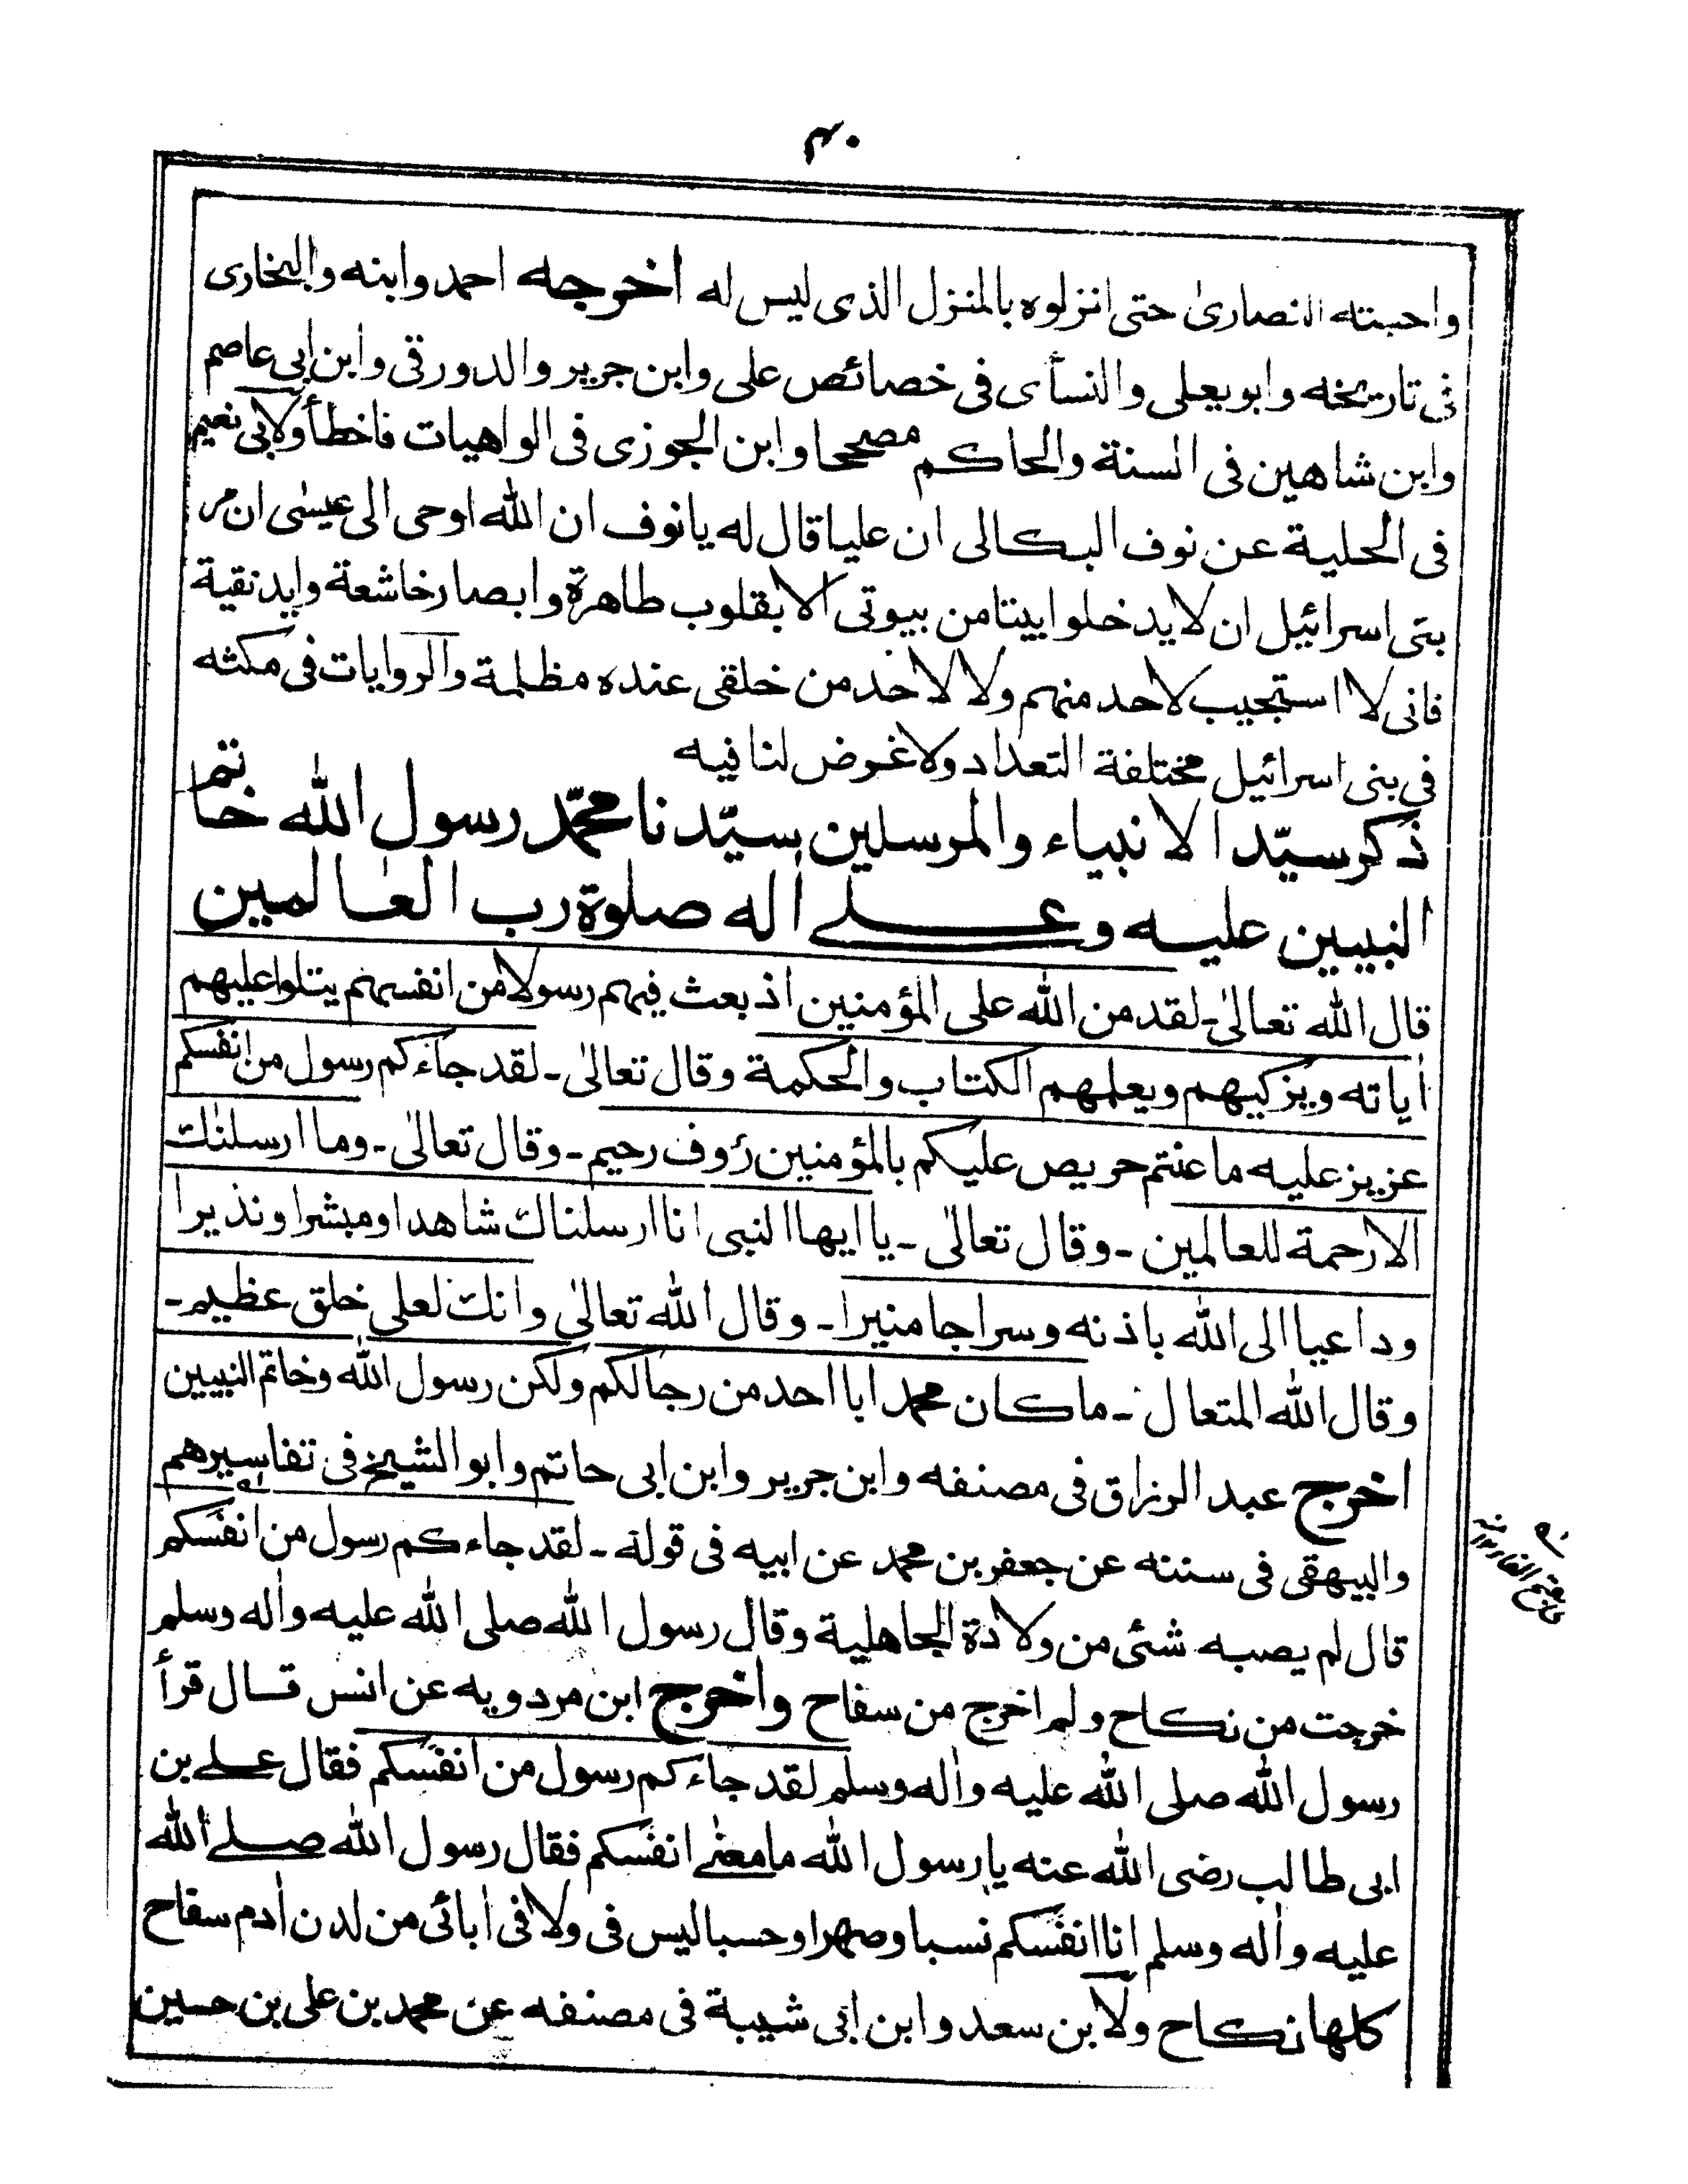 ۴۰
واحبته النصاریٰ حتی انزلوه بالمنزل الذی لیس له اخرجه احمد وابنه والبخاری
فی تاریخه وابویعلی والنسأی فی خصائص علی وابن جریر والدورقی وابن ابی عاصم
وابن شاهین فی السنة والحاکم مصححا وابن الجوزی فی الواهیات فاخطأ ولابی نعیم
فی الحلیة عن نوف البکالی ان علیا قال له یا نوف ان الله اوحی الی عیسٰی ان مر
بنی اسرائیل ان لا یدخلوا بیتا من بیوتی الا بقلوب طاهرة وابصار خاشعة واید نقیة
فانی لا استجیب لاحد منهم ولا لاحد من خلقی عنده مظلمة والروایات فی مکثه
فی بنی اسرائیل مختلفة التعداد ولا غرض لنا فیه
ذکر سیّد الانبیاء والمرسلین سیّدنا محمّد رسول الله خاتم
النبیین علیه وعلے اٰله صلوة رب العالمین
قال الله تعالیٰ۔ لقد من الله علی المؤمنین اذ بعث فیهم رسولا من انفسهم یتلوا علیهم
اٰیاته ویزکیهم ویعلمهم الکتاب والحکمة وقال تعالیٰ۔ لقد جاءکم رسول من انفسکم
عزیز علیه ما عنتم حریص علیکم بالمؤمنین رؤف رحیم۔ وقال تعالیٰ۔ وما ارسلنٰک
الا رحمة للعالمین۔ وقال تعالیٰ۔ یا ایها النبی انا ارسلناک شاهدا ومبشرا ونذیرا
وداعیا الی الله باذنه وسراجا منیرا۔ وقال الله تعالیٰ وانک لعلی خلق عظیم۔
وقال الله المتعال۔ ما کان محمد ابا احد من رجالکم ولکن رسول الله وخاتم النبیین
اخرج عبد الرزاق فی مصنفه وابن جریر وابن ابی حاتم وابو الشیخ فی تفاسیرهم
والبیهقی فی سننه عن جعفر بن محمد عن ابیه فی قولهٖ۔ لقد جاءکم رسول من انفسکم
قال لم یصبه شئی من ولادة الجاهلیة وقال رسول الله صلی الله علیه واٰله وسلم
خرجت من نکاح ولم اخرج من سفاح واخرج ابن مردویه عن انس قال قرأ
رسول الله صلی الله علیه واٰله وسلم لقد جاءکم رسول من انفَسکم فقال علے بن
ابی طالب رضی الله عنه یا رسول الله ما معنٰے انفَسکم فقال رسول الله صلے الله
علیه واٰله وسلم انا انفَسکم نسبا وصهرا وحسبا لیس فی ولا فی اٰبائی من لدن اٰدم سفاح
کلها نکاح ولابن سعد وابن ابی شیبة فی مصنفه عن محمد بن علی بن حسین